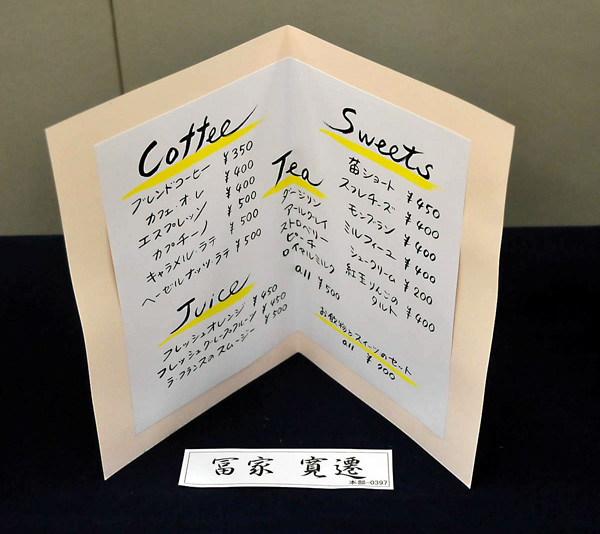 Coffee
ブレンドコーヒー ¥350
カフェ・オ・レ ¥400
エスプレッソ ¥400
カプチーノ ¥500
キャラメル・ラテ ¥500
ヘーゼルナッツ・ラテ ¥500
Juice
フレッシュオレンジ ¥450
フレッシュグレープフルーツ ¥450
ラ・フランスのスムージー ¥500
Tea
ダージリン
アールグレイ
ストロベリー
ピーチ
ロイヤルミルク
all ¥500
Sweets
苺ショート ¥450
スフレチーズ ¥400
モンブラン ¥400
ミルフィーユ ¥400
シュークリーム ¥200
紅玉りんごの
タルト ¥400
お飲物とスイーツのセット
all ¥900
冨家 寛遷
本部-0397